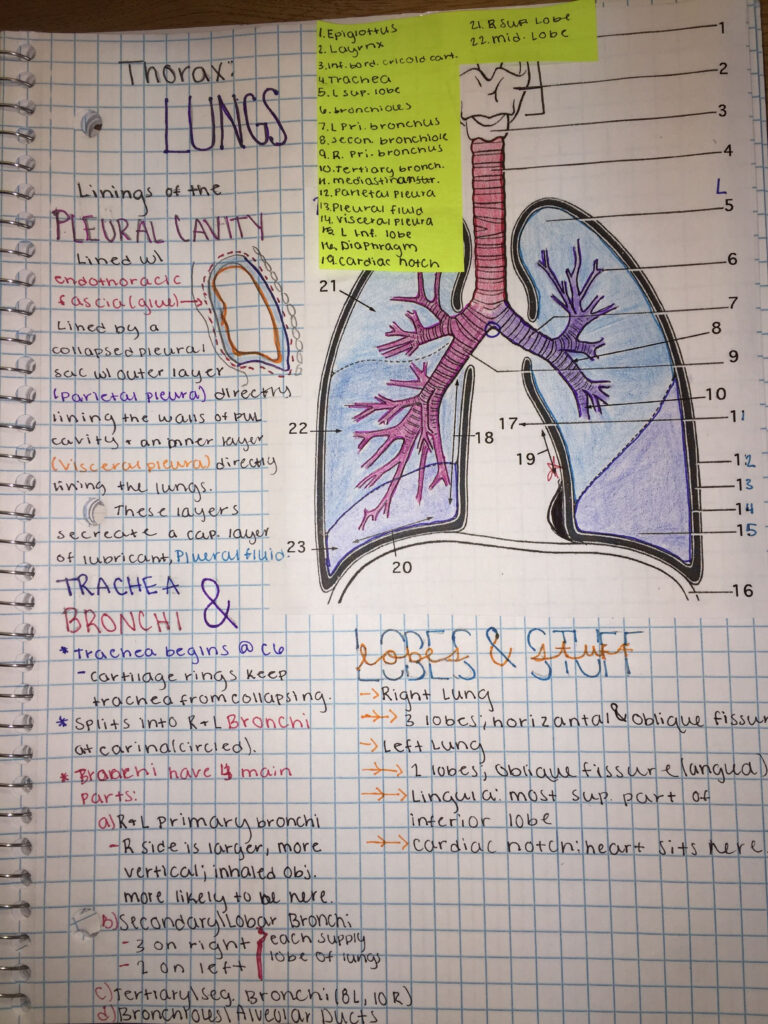 Thorax:
LUNGS
Linings of the
PLEURAL CAVITY
Lined w/
endothoracic
fascia (glue)→
Lined by a
collapsed pleural
sac w/ outer layer
(parietal pleura) directly
lining the walls of pul
cavity + an inner layer
(visceral pleura) directly
lining the lungs.
These layers
secreate a cap. layer
of lubricant, Plueral fluid.
1. Epiglottus
2. Layrnx
3. inf. bord. cricoid cart.
4. Trachea
5. L sup. lobe
6. bronchioles
7. L Pri. bronchus
8. secon. bronchiole
9. R. Pri. bronchus
10. Tertiary bronch.
12. Parietal pleura
13. Pleural fluid
14. Visceral pleura
L inf. lobe
16. Diaphragm
19. Cardiac notch
21. R Sup Lobe
22. Mid. Lobe
1
2
3
4
L
5
6
7
8
9
10
11
12
13
14
15
16
17
18
19
20
21
22
23
TRACHEA
& BRONCHI
* Trachea begins @ C6
- cartilage rings keep
trachea from collapsing.
* Splits into R + L Bronchi
at carina (circled).
* Bronchi have 4 main
parts:
a) R + L primary bronchi
- R side is larger, more
vertical; inhaled obj.
more likely to be here.
b) Secondary/Lobar Bronchi
- 3 on right } each supply
- 2 on left lobe of lungs
c) Tertiary/seg. Bronchi (8L, 10R)
d) Bronchious/Alveolar Ducts
LOBES & STUFF
lobes stuff
→ Right Lung
→→ 3 lobes; horizantal & oblique fissur
→ Left Lung
→→ 2 lobes; oblique fissure (langua)
→→ Lingula: most sup. part of
inferior lobe
→→ cardiac notch: heart sits here.